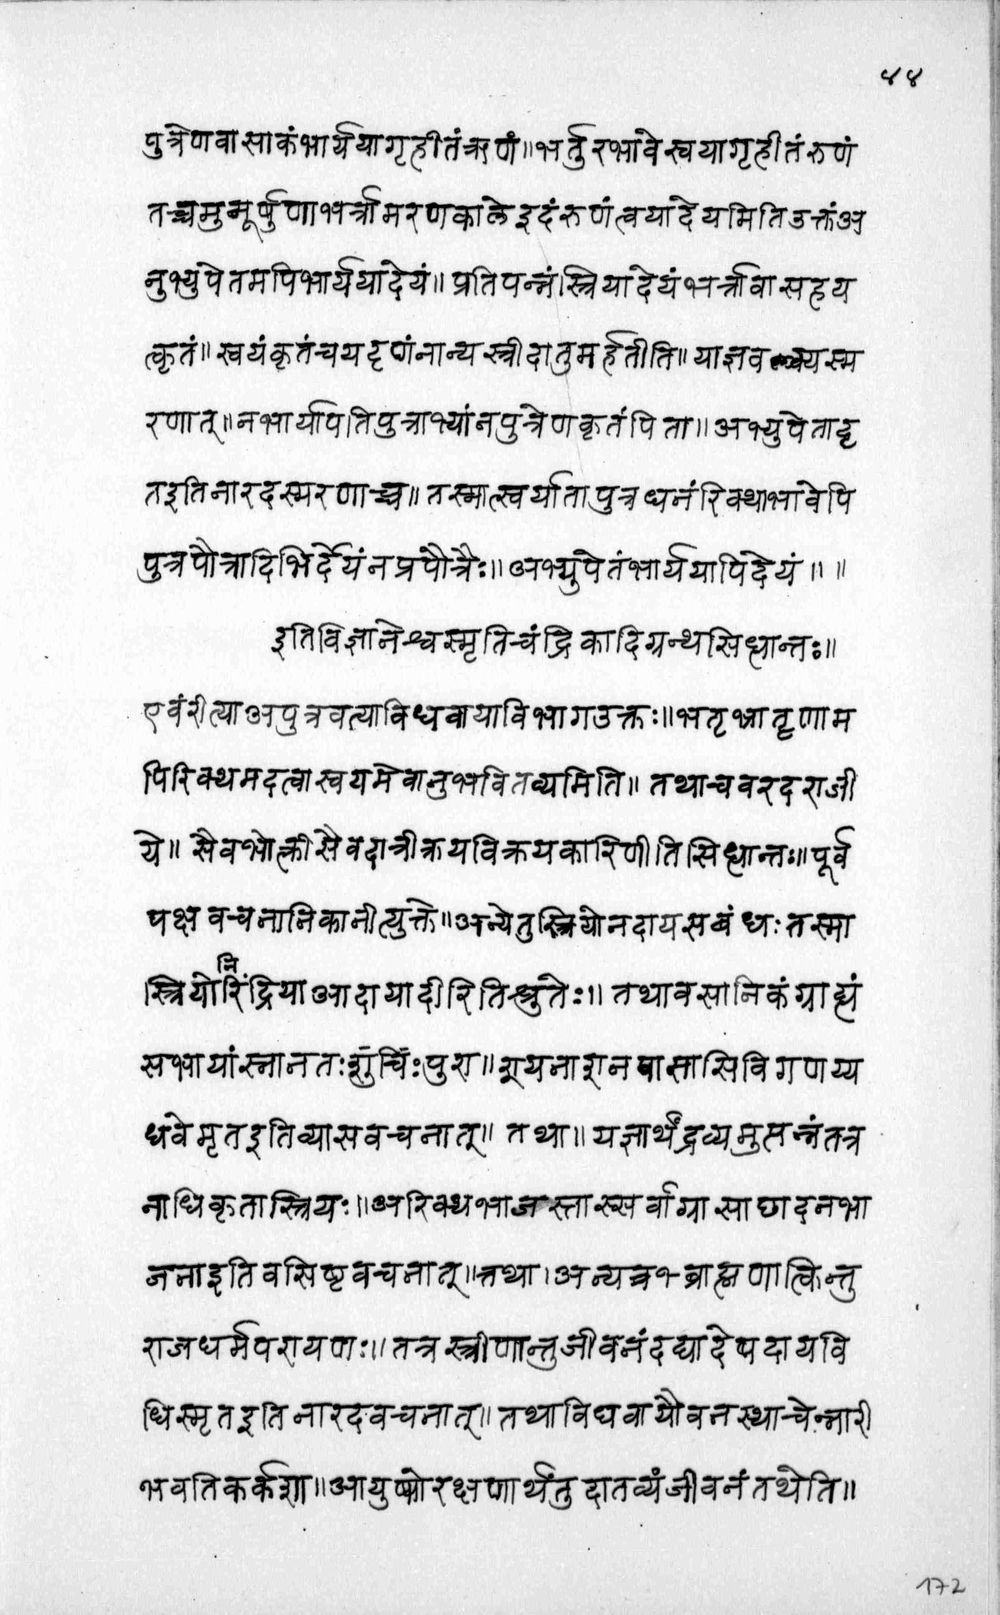 ४४
पुत्रेणवासाकंभार्ययागृहीतंऋणं॥भर्तुरभावेस्वयागृहीतंरुणं
तच्चमुमूर्षुणाभर्त्रामरणकालेइदंरुणंत्वयादेयमितिउक्तंअ
नुभ्युपेतमपिभार्ययादेयं॥प्रतिपन्नंस्त्रियादेयंभर्त्रावासहय
त्कृतं॥स्वयंकृतंचयदृणंनान्यस्त्रीदातुमर्हतीति॥याज्ञवल्क्यस्म
रणात्॥नभार्यापतिपुत्राभ्यांनपुत्रेणकृतंपिता॥अभ्युपेतादृ
तइतिनारदस्मरणाच्च॥तस्मात्स्वर्यातापुत्रधनंरिक्थाभावेपि
पुत्रपौत्रादिभिर्देयंनप्रपौत्रैः॥अभ्युपेतंभार्ययापिदेयं॥॥
इतिविज्ञानेश्वस्मृतिचंद्रिकादिग्रन्थसिध्धान्तः॥
एवंरीत्याअपुत्रवत्याविधवायाविभागउक्तः॥भतृभ्रातॄणाम
पिरिक्थमदत्वास्वयमेवानुभवितव्यमिति॥तथाचवरदराजी
ये॥सैवभोत्क्रीसैवदात्रीक्रयविक्रयकारिणीतिसिध्धान्तः॥पूर्व
पक्षवचनानिकानीत्युक्ते॥अन्येतुस्त्रियोनदायसबंधःतस्मा
स्त्रियोनिरिंद्रियाआदायादीरितिश्रुतेः॥तथावसानिकंग्राह्यं
सभायांस्नानतःशुचिःपुरा॥शयनाशनवासासिविगणय्य
धवेमृतइतिव्यासवचनात्॥तथा॥यज्ञार्थंद्रव्यमुत्पन्नंतत्र
नाधिकृतास्त्रियः॥अरिक्थभाजस्तास्सर्वाग्रासाछादनभा
जनाइतिवसिष्टवचनात्॥तथा।अन्यत्रब्राह्मणात्किन्तु
राजधर्मपरायणः॥तत्रस्त्रीणान्तुजीवनंदद्यादेषदायवि
धिस्मृतइतिनारदवचनात्॥तथाविधवायौवनस्थाचेन्नारी
भवतिकर्कशा॥आयुषोरक्षणार्थंतुदातव्यंजीवनंतथेति॥
172